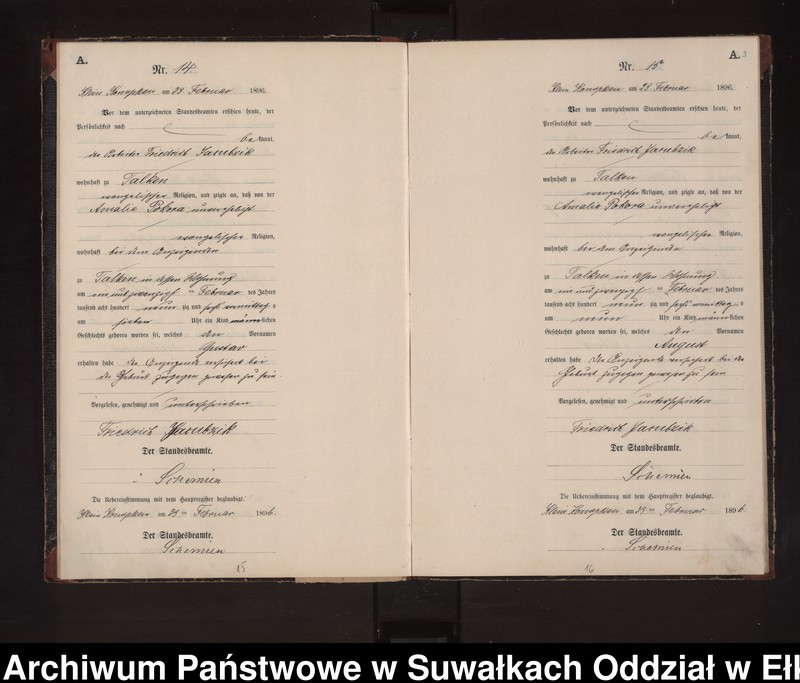 A.
Nr. 14.
Klein Konopken am 23. Februar 1896.
Vor dem unterzeichneten Standesbeamten erschien heute, der
Persönlichkeit nach
be kannt,
der Arbeiter Friedrich Jarubzik
wohnhaft zu Talken
evangelischer Religion, und zeigte an, daß von der
Amalie Pokora unverehligt
evangelischer Religion,
wohnhaft bei dem Anzeigenden
zu Talken in dessen Wohnung
am ein und zwanzigsten Februar des Jahres
tausend acht hundert neun zig und sechs vormittag s
um sieben Uhr ein Kind männlichen
Geschlechts geboren worden sei, welches den Vornamen
Gustav
erhalten habe. Der Anzeigende versichert bei
der Geburt zugegen gewesen zu sein.
Vorgelesen, genehmigt und unterschrieben
Friedrich Jarubzik
Der Standesbeamte.
Schemien
Die Uebereinstimmung mit dem Hauptregister beglaubigt.
Klein Konopken am 23ten Februar 1896.
Der Standesbeamte.
Schemien
15
A. 3
Nr. 15.
Klein Konopken am 23. Februar 1896.
Vor dem unterzeichneten Standesbeamten erschien heute, der
Persönlichkeit nach
be kannt,
der Arbeiter Friedrich Jarubzik
wohnhaft zu Talken
evangelischer Religion, und zeigte an, daß von der
Amalie Pokora unverehligt
evangelischer Religion,
wohnhaft bei dem Anzeigende
zu Talken in dessen Wohnung
am ein und zwanzigsten Februar des Jahres
tausend acht hundert neun zig und sechs vormittag s
um neun Uhr ein Kind männlichen
Geschlechts geboren worden sei, welches den Vornamen
August
erhalten habe. Der Anzeigende versichert bei der
Geburt zugegen gewesen zu sein
Vorgelesen, genehmigt und unterschrieben
Friedrich Jarubzik
Der Standesbeamte.
Schemien
Die Uebereinstimmung mit dem Hauptregister beglaubigt.
Klein Konopken am 23ten Februar 1896.
Der Standesbeamte.
Schemien
16
Archiwum Państwowe w Suwałkach Oddział w Ełk